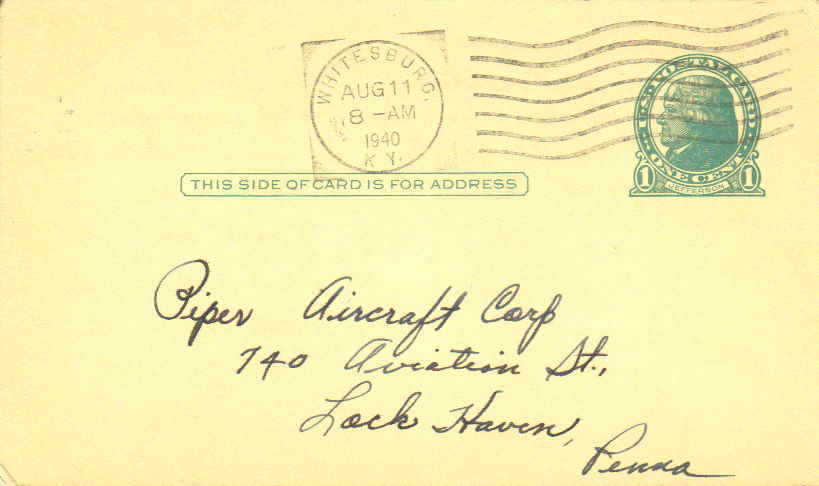 WHITESBURG.
AUG 11
8 -AM
1940
KY.
U.S. POSTAL CARD
ONE CENT
1 JEFFERSON 1
THIS SIDE OF CARD IS FOR ADDRESS
Piper Aircraft Corp
740 Aviation St.,
Lock Haven,
Penna